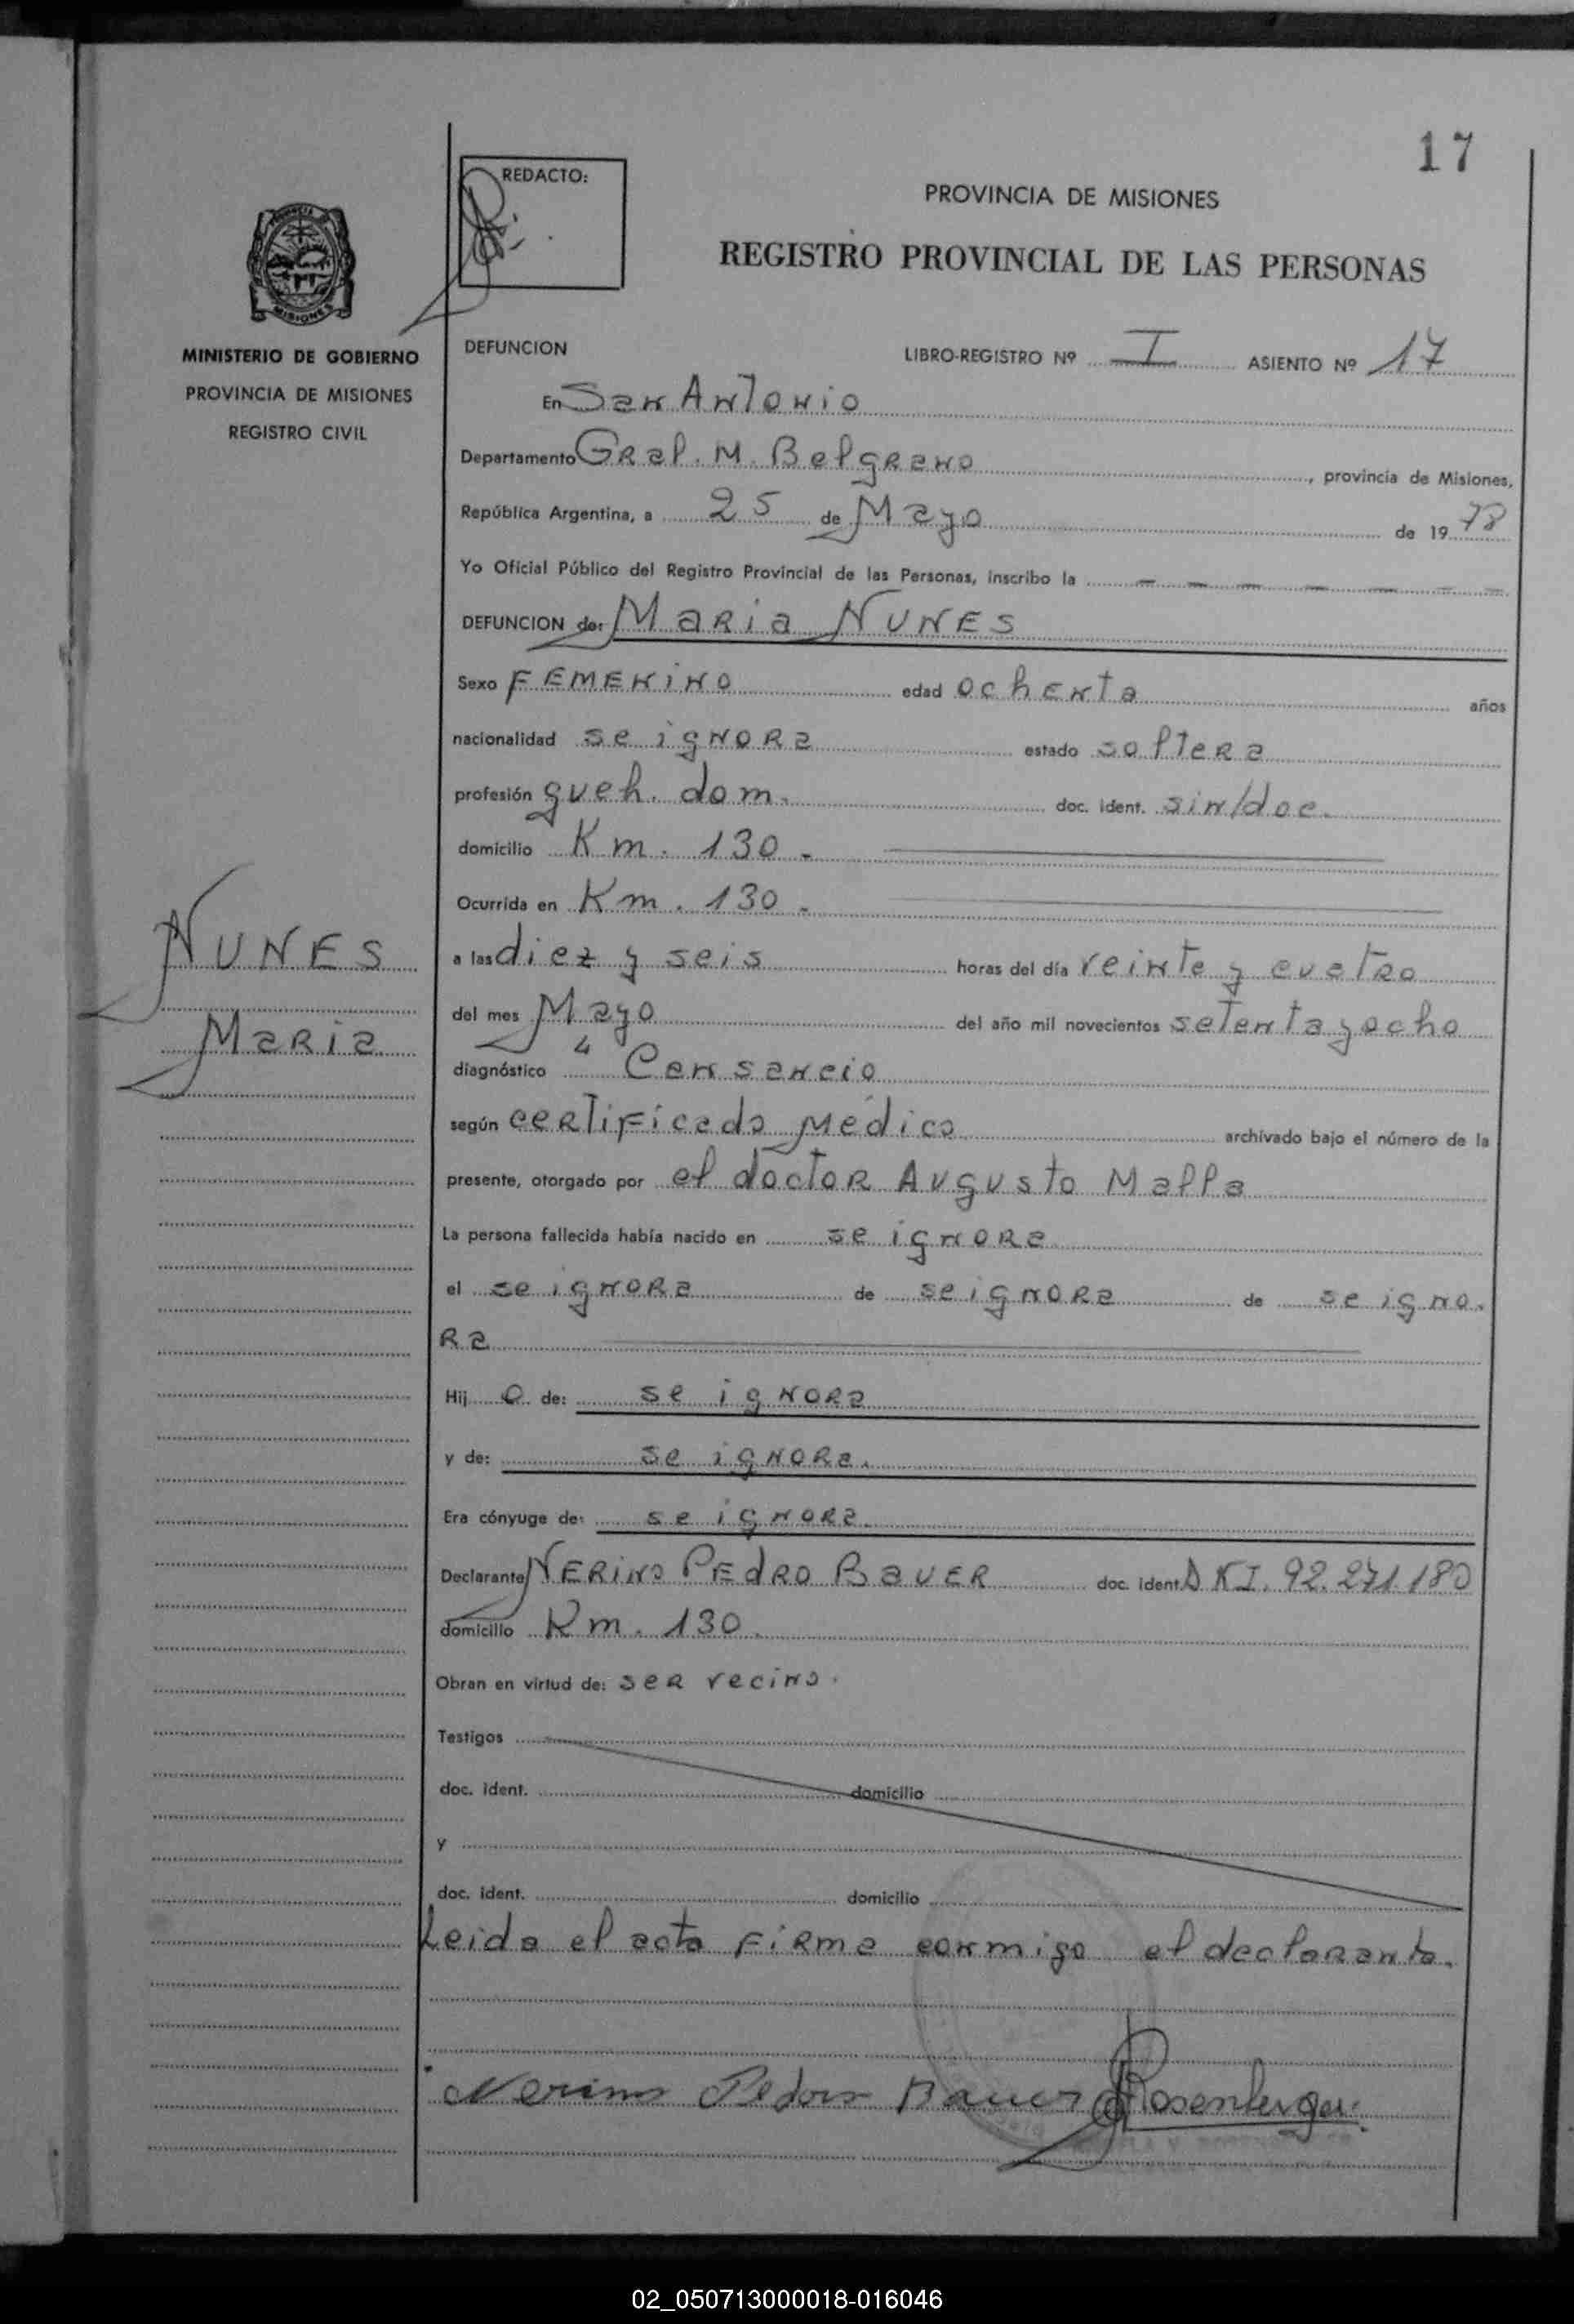 17
REDACTO:
PROVINCIA DE MISIONES
REGISTRO PROVINCIAL DE LAS PERSONAS
MISIONES
MINISTERIO DE GOBIERNO
PROVINCIA DE MISIONES
REGISTRO CIVIL
DEFUNCION LIBRO-REGISTRO Nº I ASIENTO Nº 17
En San Antonio
Departamento Gral. M. Belgrano, provincia de Misiones,
República Argentina, a 25 de Mayo de 19 78
Yo Oficial Público del Registro Provincial de las Personas, inscribo la - - - - - - -
DEFUNCION de: Maria NUNES
Sexo FEMENINO edad ochenta años
nacionalidad se ignora estado soltera
profesión queh. dom. doc. ident. sin/doc.
domicilio Km. 130.-
Ocurrida en Km. 130.-
NUNES
Maria
a las diez y seis horas del día veinte y cuatro
del mes Mayo del año mil novecientos setenta y ocho
diagnóstico " Cansancio
según certificado Médico archivado bajo el número de la
presente, otorgado por el doctor Augusto Malla
La persona fallecida había nacido en se ignora
el se ignora de se ignora de se igno.
ra
Hij a de: se ignora
y de: se ignora.
Era cónyuge de: se ignora.
Declarante NERINO PEDRO BAUER doc. ident. D.N.I. 92.271.180
domicilio Km. 130.
Obran en virtud de: ser vecino.
Testigos
doc. ident. domicilio
y
doc. ident. domicilio
Leida el acta firma conmigo el declarante.
Nerino Pedro Bauer Rosenberger
02_050713000018-016046